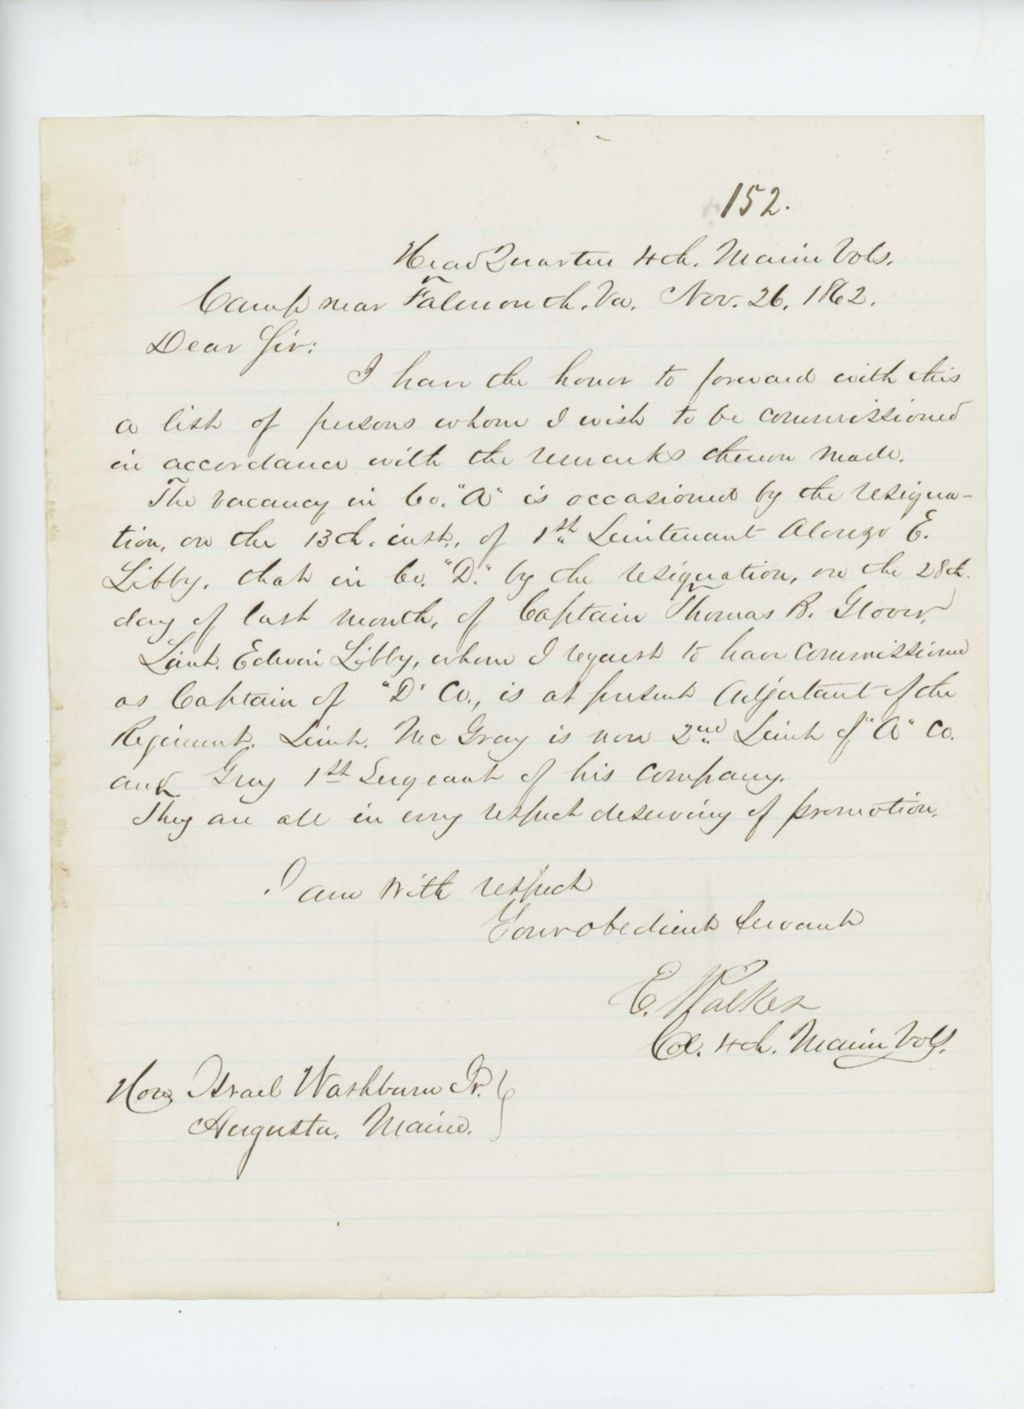 152.
Head Quarters 4th. Maine Vols.
Camp near Falmouth. Va. Nov. 26, 1862.
Dear Sir:
I have the honor to forward with this
a list of persons whom I wish to be commissioned
in accordance with the remarks thereon made.
The vacancy in Co. "A" is occasioned by the resigna-
tion, on the 13th. inst., of 1st. Lieutenant Alonzo E.
Libby, that in Co. "D." by the resignation, on the 28th.
day of last month, of Captain Thomas B. Glover.
Lieut. Edwin Libby, whom I request to have commissioned
as Captain of "D" Co., is at present Adjutant of the
Regiment. Lieut. Mc Gray is now 2nd. Lieut of "A" Co.
and Gray 1st Sergeant of his company.
They are all in every respect deserving of promotion.
I am with respect
Your obedient servant
E. Walker
Col. 4th. Maine Vols.
Hon Israel Washburn Jr. }
Augusta. Maine.